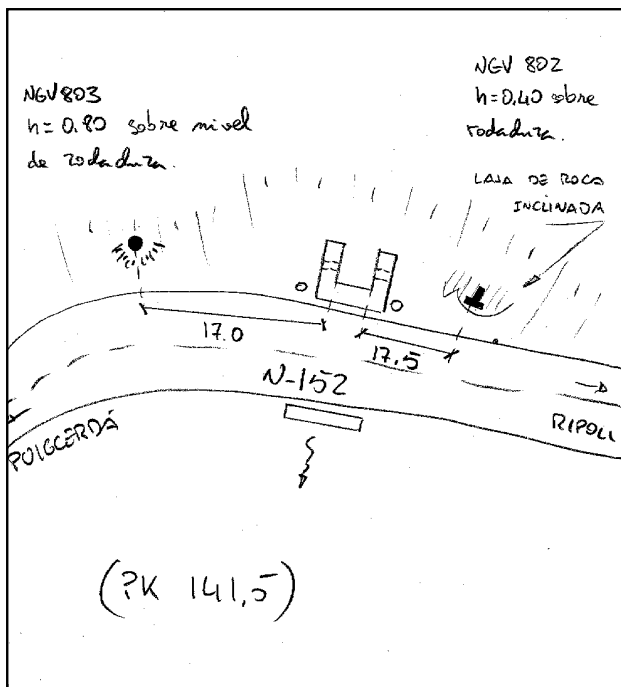 NGV803
h=0.80 sobre nivel
de rodadura.
NGV 802
h=0.40 sobre
rodadura.
LAJA DE ROCA
INCLINADA
17.0
17.5
N-152
POIGCERDÁ
RIPOLL
(PK 141,5)